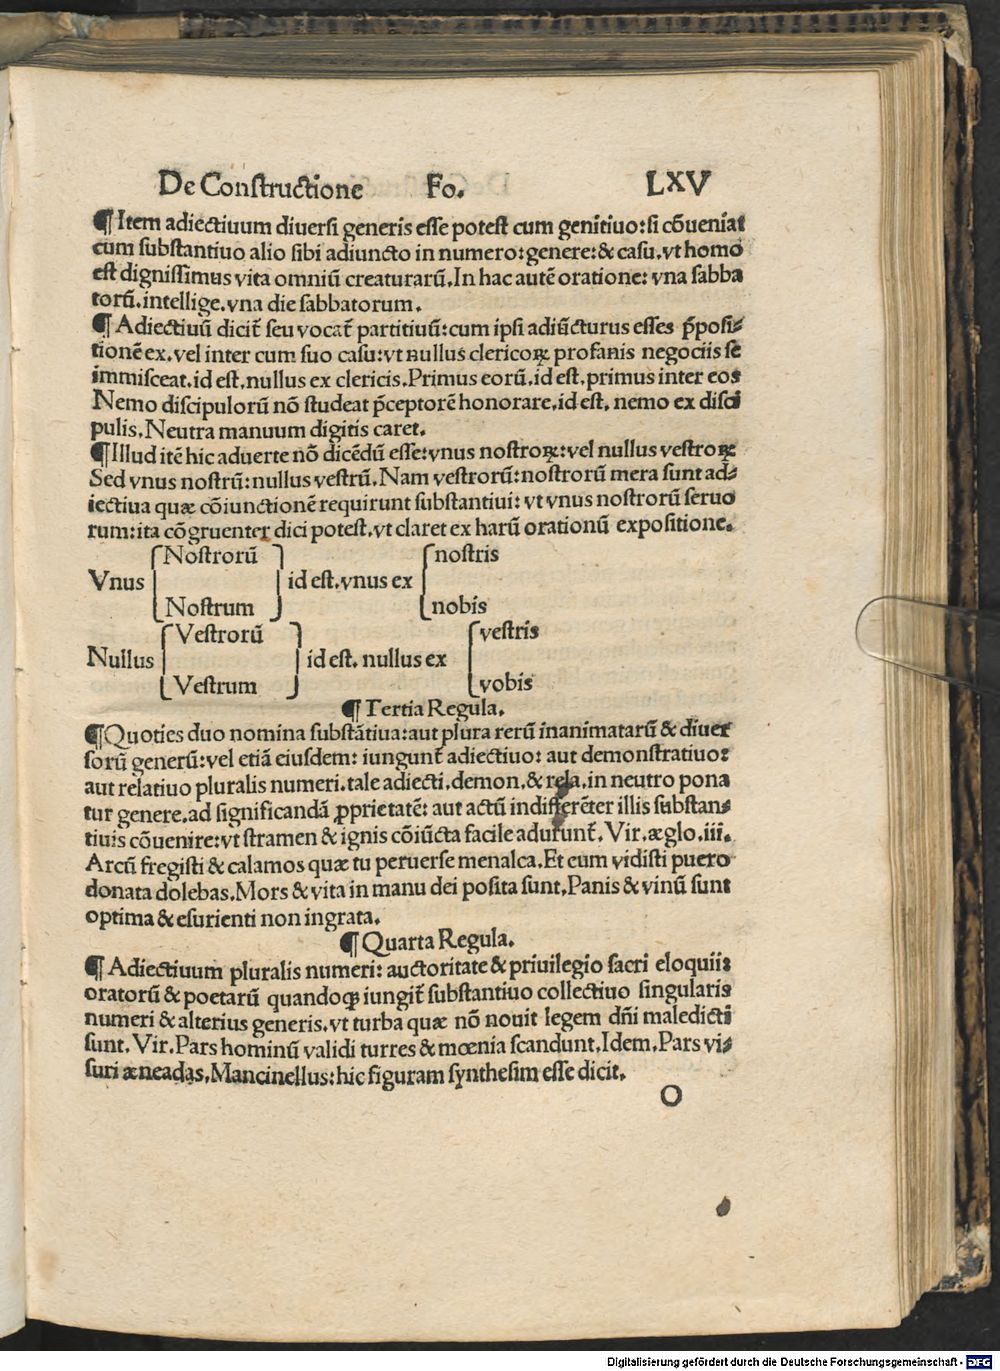 De Constructione Fo. LXV
¶Item adiectiuum diuersi generis esse potest cum genitiuo:si cōueniat
cum substantiuo alio sibi adiuncto in numero:genere:& casu.vt homo
est dignissimus vita omniū creaturarū.In hac autē oratione: vna sabba
torū.intellige.vna die sabbatorum.
¶Adiectiuū dicit̄ seu vocat̄ partitiuū:cum ipsi adiūcturus esses p̄posi⸗
tionē ex.vel inter cum suo casu:vt nullus clericoꝝ profanis negociis se
immisceat.id est.nullus ex clericis.Primus eorū.id est.primus inter eos
Nemo discipulorū nō studeat p̄ceptorē honorare.id est. nemo ex disci
pulis.Neutra manuum digitis caret.
¶Illud itē hic aduerte nō dicēdū esse:vnus nostroꝝ:vel nullus vestroꝝ
Sed vnus nostrū:nullus vestrū.Nam vestrorū:nostrorū mera sunt ad⸗
iectiua quæ cōiunctionē requirunt substantiui: vt vnus nostrorū seruo
rum:ita cōgruenter dici potest.vt claret ex harū orationū expositione.
Nostrorū nostris
Vnus id est.vnus ex
Nostrum nobis
Vestrorū vestris
Nullus id est. nullus ex
Vestrum vobis
¶Tertia Regula.
¶Quoties duo nomina substātiua:aut plura rerū inanimatarū & diuer
sorū generū:vel etiā eiusdem: iungunt̄ adiectiuo: aut demonstratiuo:
aut relatiuo pluralis numeri.tale adiecti.demon.& rela.in neutro pona
tur genere.ad significandā ꝓprietatē: aut actū indifferēter illis substan⸗
tiuis cōuenire:vt stramen & ignis cōiūcta facile adurunt̄. Vir.æglo.iii.
Arcū fregisti & calamos quæ tu peruerse menalca.Et cum vidisti puero
donata dolebas.Mors & vita in manu dei posita sunt.Panis & vinū sunt
optima & esurienti non ingrata.
¶Quarta Regula.
¶Adiectiuum pluralis numeri: auctoritate & priuilegio sacri eloquii:
oratorū & poetarū quandoqꝫ iungit̄ substantiuo collectiuo singularis
numeri & alterius generis.vt turba quæ nō nouit legem dn̄i maledicti
sunt. Vir.Pars hominū validi turres & mœnia scandunt.Idem.Pars vi⸗
suri æneadas.Mancinellus:hic figuram synthesim esse dicit.
O
Digitalisierung gefördert durch die Deutsche Forschungsgemeinschaft - DFG